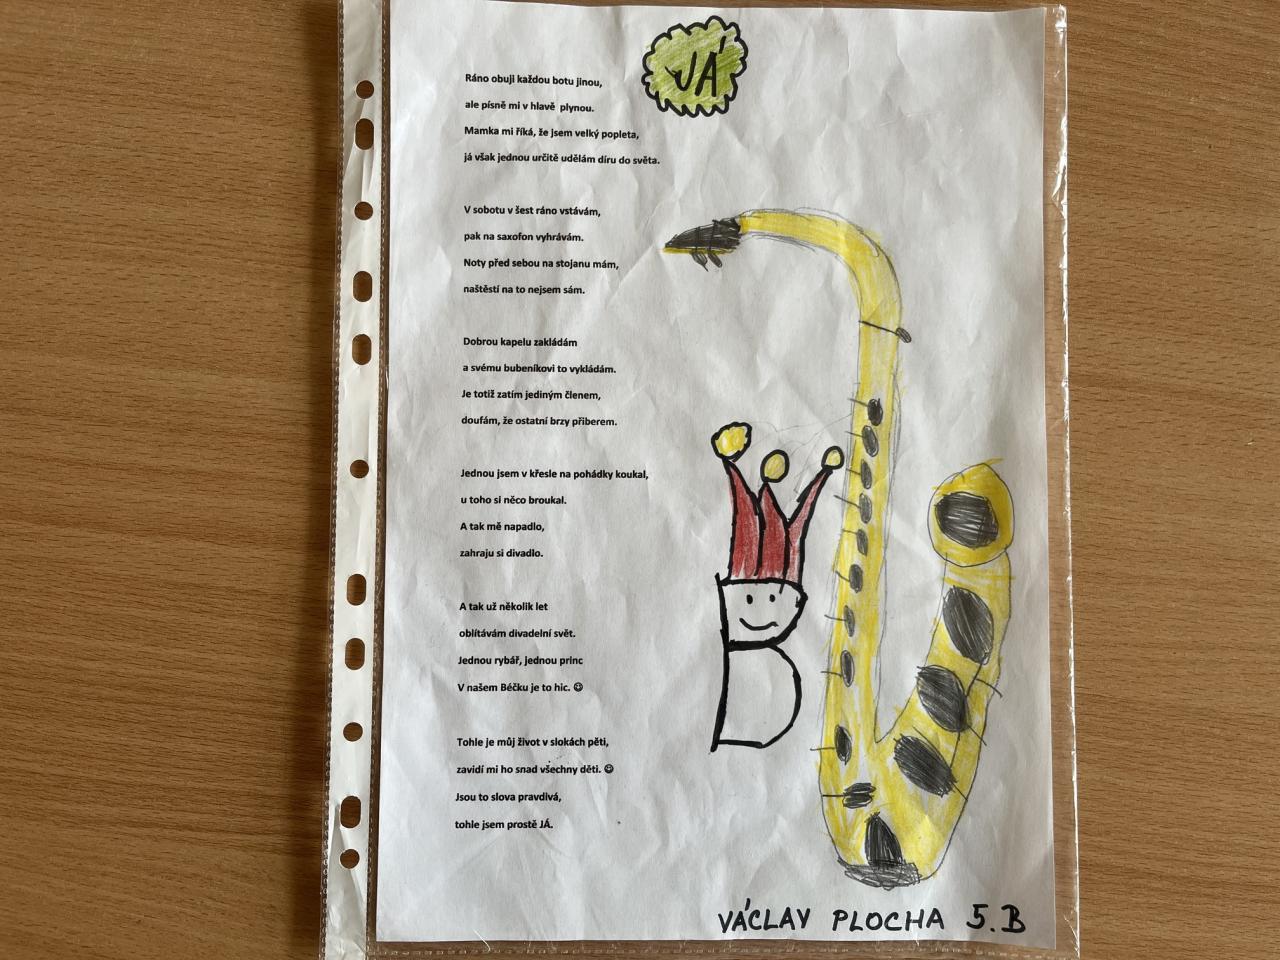 JÁ
Ráno obuji každou botu jinou,
ale písně mi v hlavě plynou.
Mamka mi říká, že jsem velký popleta,
já však jednou určitě udělám díru do světa.
V sobotu v šest ráno vstávám,
pak na saxofon vyhrávám.
Noty před sebou na stojanu mám,
naštěstí na to nejsem sám.
Dobrou kapelu zakládám
a svému bubeníkovi to vykládám.
Je totiž zatím jediným členem,
doufám, že ostatní brzy přiberem.
Jednou jsem v křesle na pohádky koukal,
u toho si něco broukal.
A tak mě napadlo,
zahraju si divadlo.
A tak už několik let
oblítávám divadelní svět.
Jednou rybář, jednou princ
V našem Béčku je to hic. ☺
Tohle je můj život v slokách pěti,
zavidí mi ho snad všechny děti. ☺
Jsou to slova pravdivá,
tohle jsem prostě JÁ.
B
VÁCLAV PLOCHA 5.B